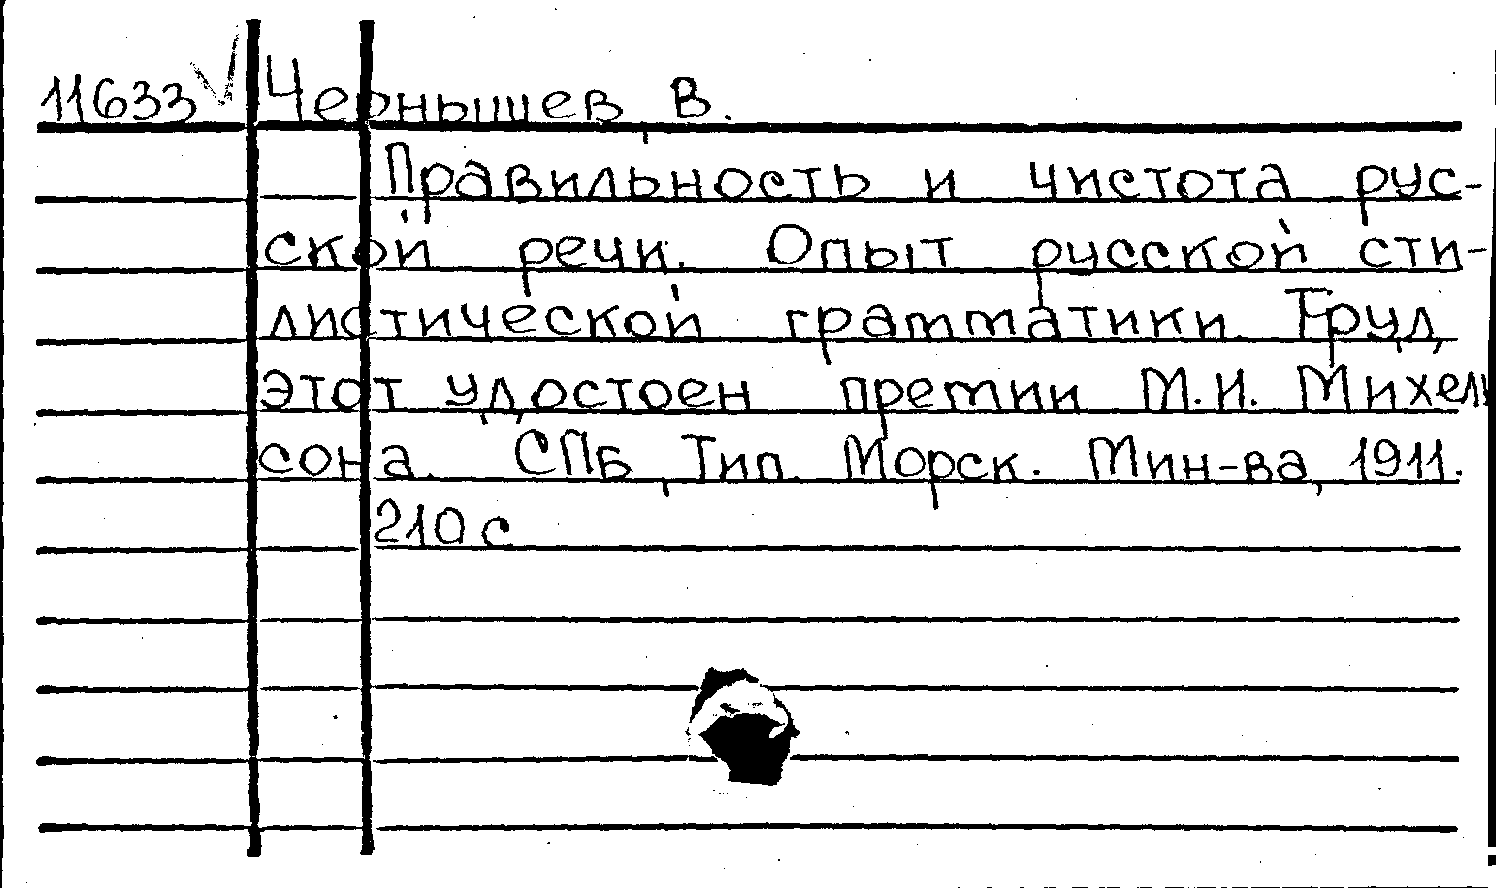 11633 Чернышев, В.
Правильность и чистота рус-
ской речи. Опыт русской сти-
листической грамматики. Труд
этот удостоен премии М.И. Михель
сона. СПБ, Тип. Морск. Мин-ва, 1911.
210 с